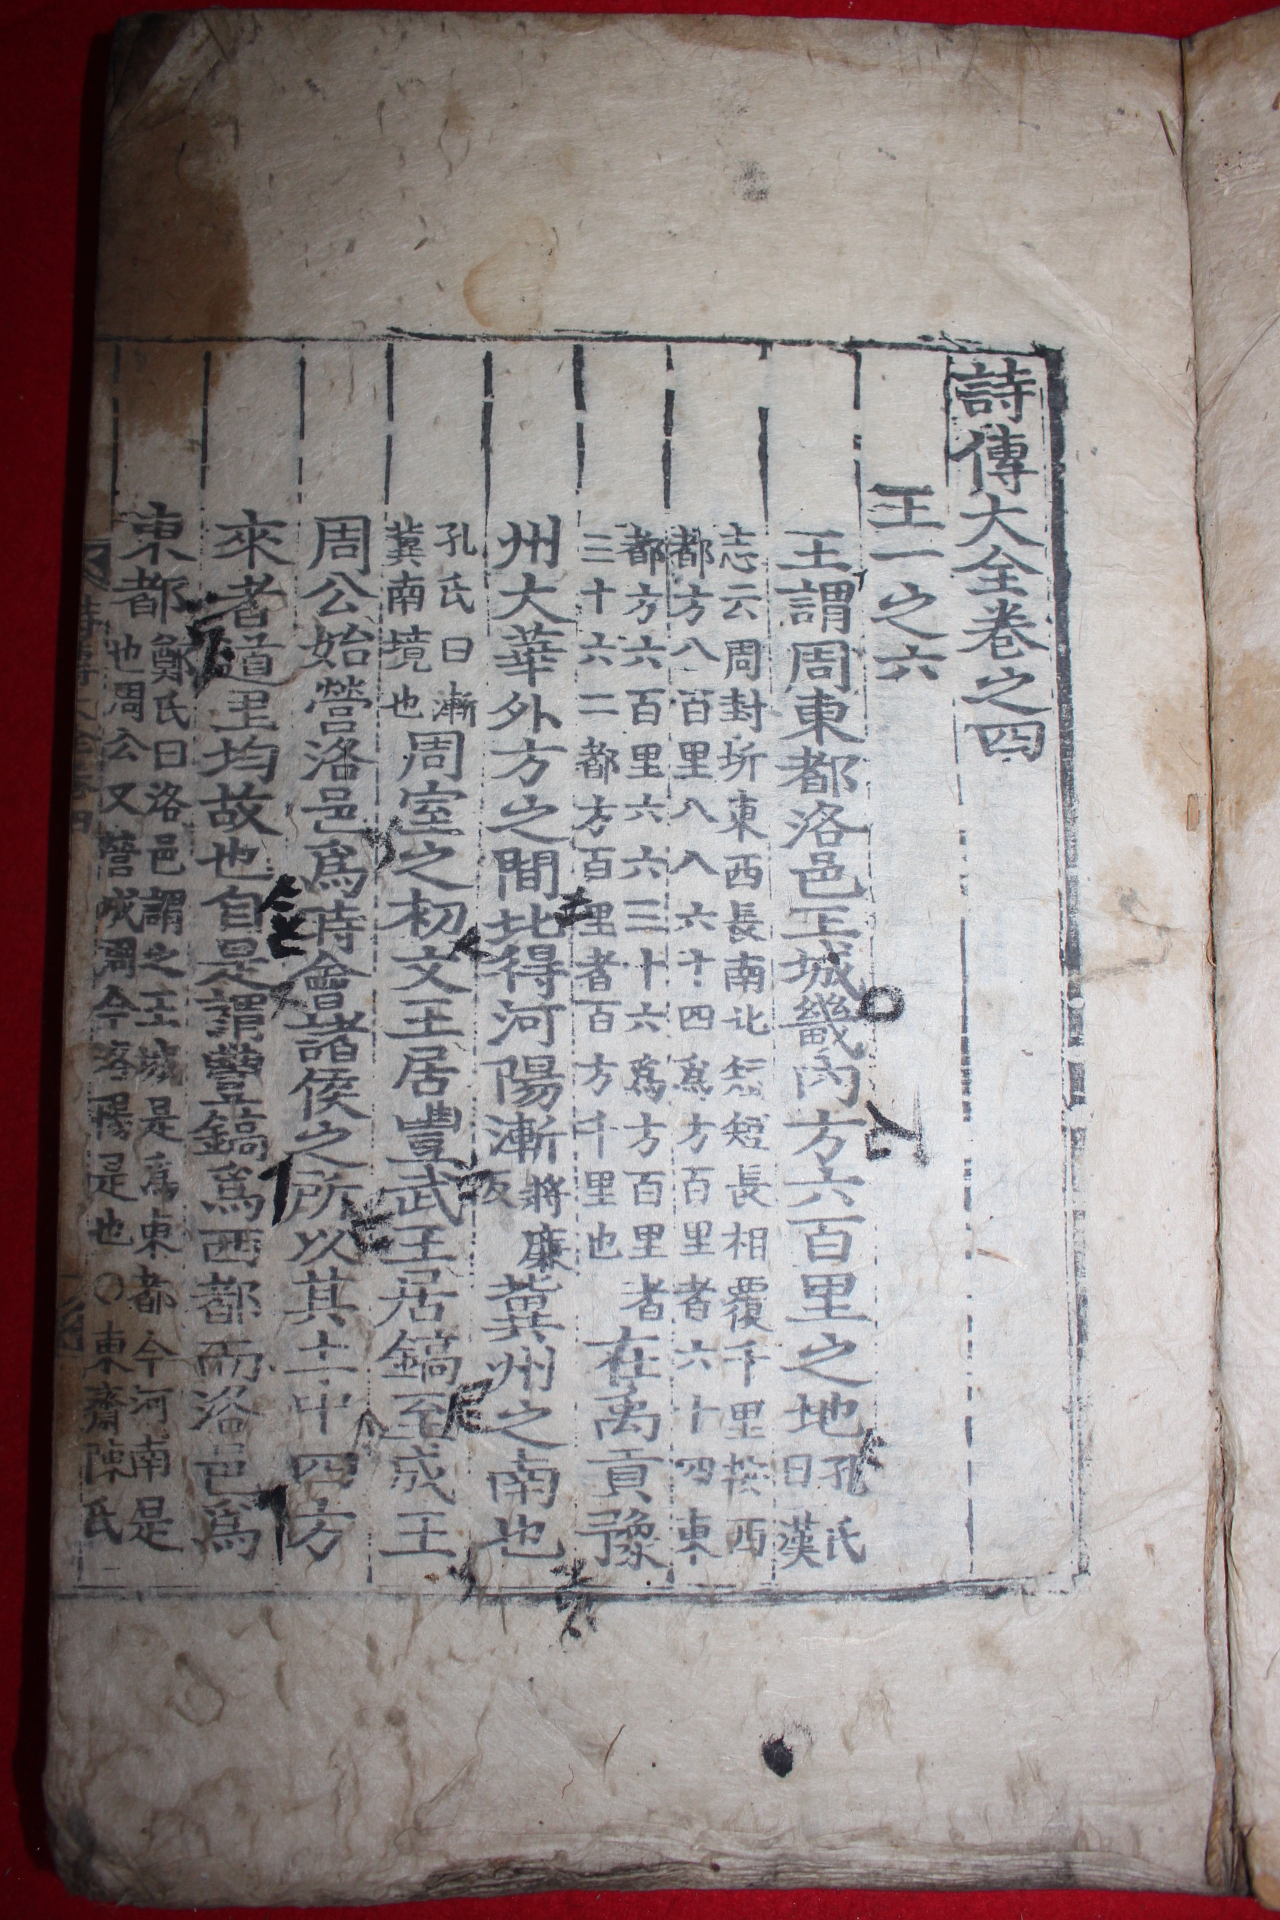 詩傳大全卷之四
王一之六
王謂周東都洛邑王城畿內方六百里之地孔氏曰漢
志云周封圻東西長南北短短長相覆千里按西
都方八百里八八六十四爲方百里者六十四東
都方六百里六六三十六爲方百里者
三十六二都方百里者百方千里也在禹貢豫
州大華外方之間北得河陽漸將廉反冀州之南也
孔氏曰漸冀南境也周室之初文王居豐武王居鎬至成王
周公始營洛邑爲時會諸侯之所以其土中四方
來者道里均故也自是謂豐鎬爲西都而洛邑爲
東都鄭氏曰洛邑謂之王城是爲東都今河南是
也周公又營成周今洛陽是也○東齋陳氏